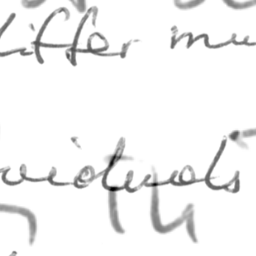 differ mu
viduals